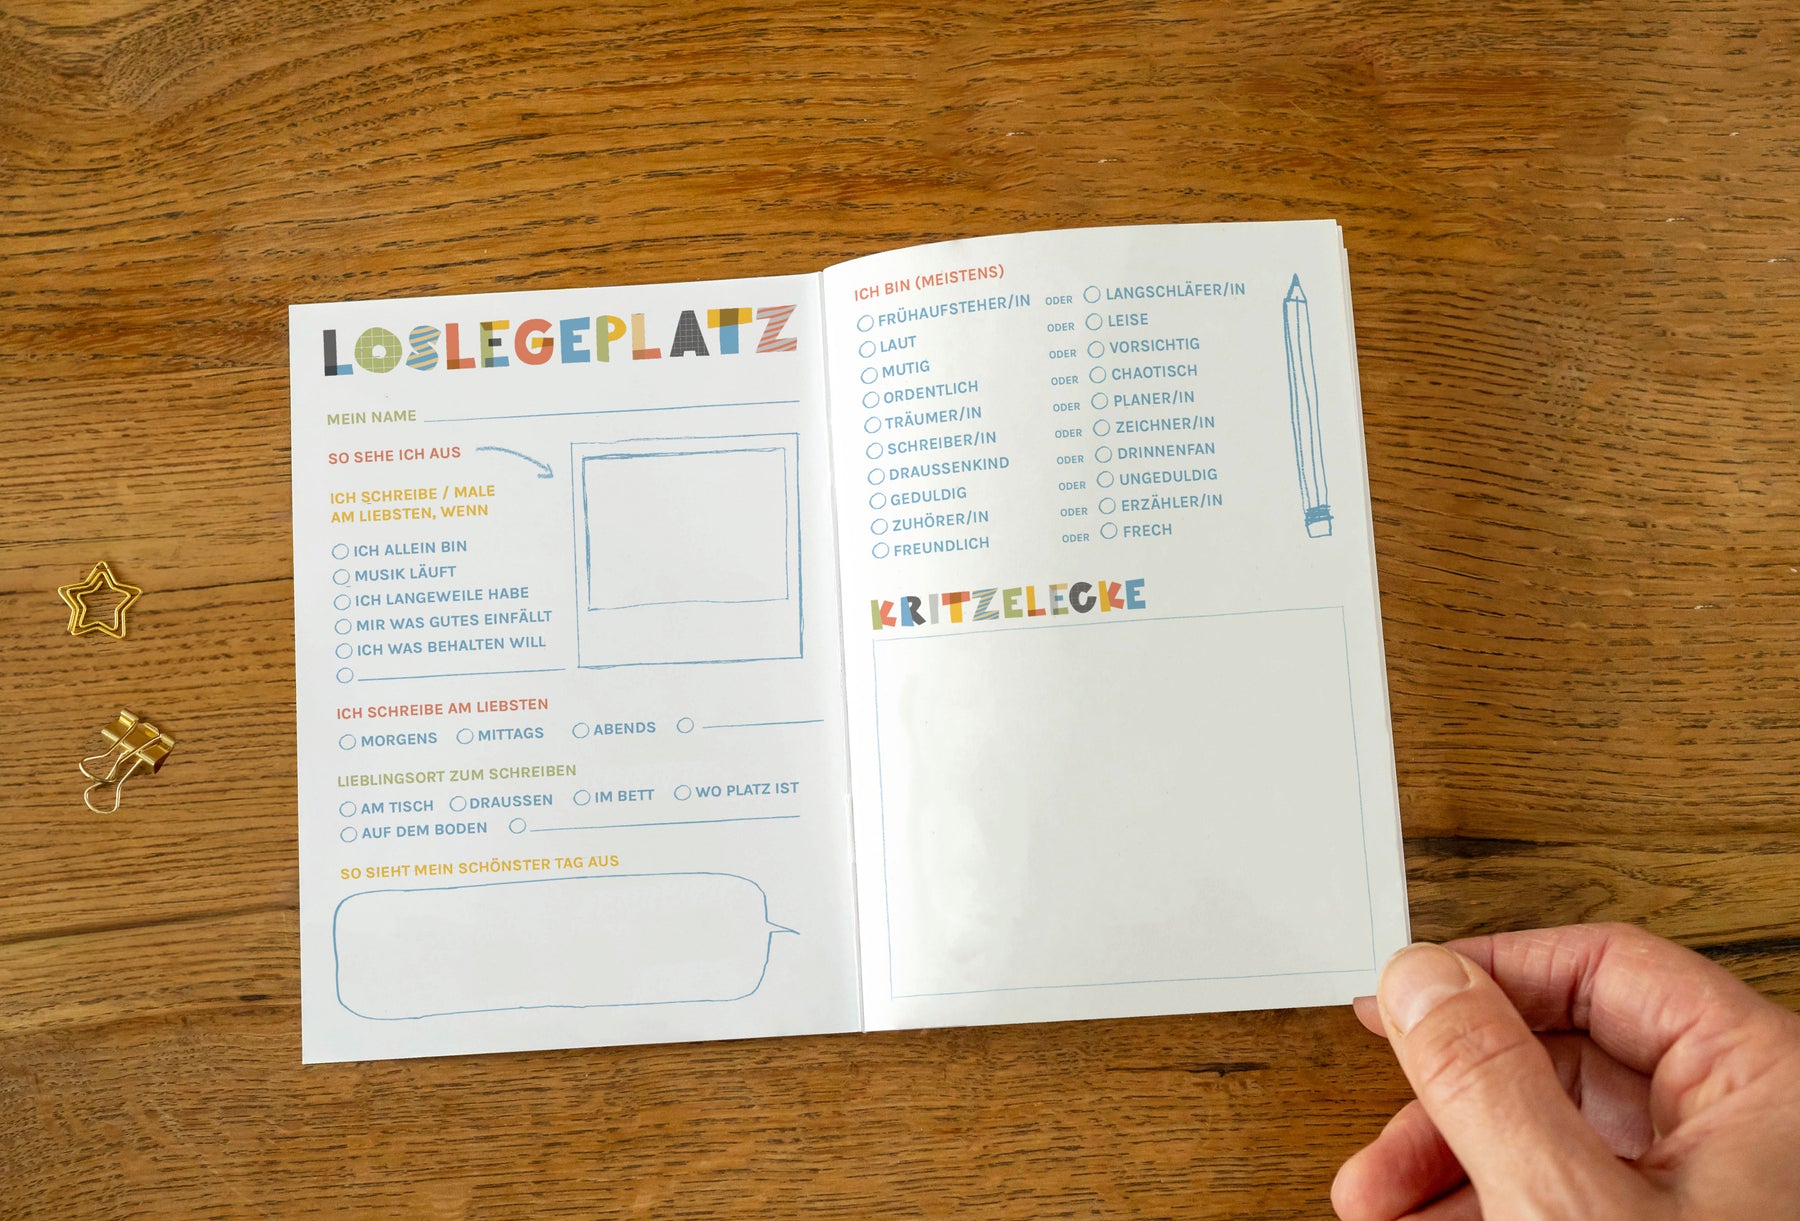 LOSLEGEPLATZ
MEIN NAME
SO SEHE ICH AUS
ICH SCHREIBE / MALE
AM LIEBSTEN, WENN
ICH ALLEIN BIN
MUSIK LÄUFT
ICH LANGEWEILE HABE
MIR WAS GUTES EINFÄLLT
ICH WAS BEHALTEN WILL
ICH SCHREIBE AM LIEBSTEN
MORGENS MITTAGS ABENDS
LIEBLINGSORT ZUM SCHREIBEN
AM TISCH DRAUSSEN IM BETT WO PLATZ IST
AUF DEM BODEN
SO SIEHT MEIN SCHÖNSTER TAG AUS
ICH BIN (MEISTENS)
FRÜHAUFSTEHER/IN ODER LANGSCHLÄFER/IN
LAUT ODER LEISE
MUTIG ODER VORSICHTIG
ORDENTLICH ODER CHAOTISCH
TRÄUMER/IN ODER PLANER/IN
SCHREIBER/IN ODER ZEICHNER/IN
DRAUSSENKIND ODER DRINNENFAN
GEDULDIG ODER UNGEDULDIG
ZUHÖRER/IN ODER ERZÄHLER/IN
FREUNDLICH ODER FRECH
KRITZELECKE